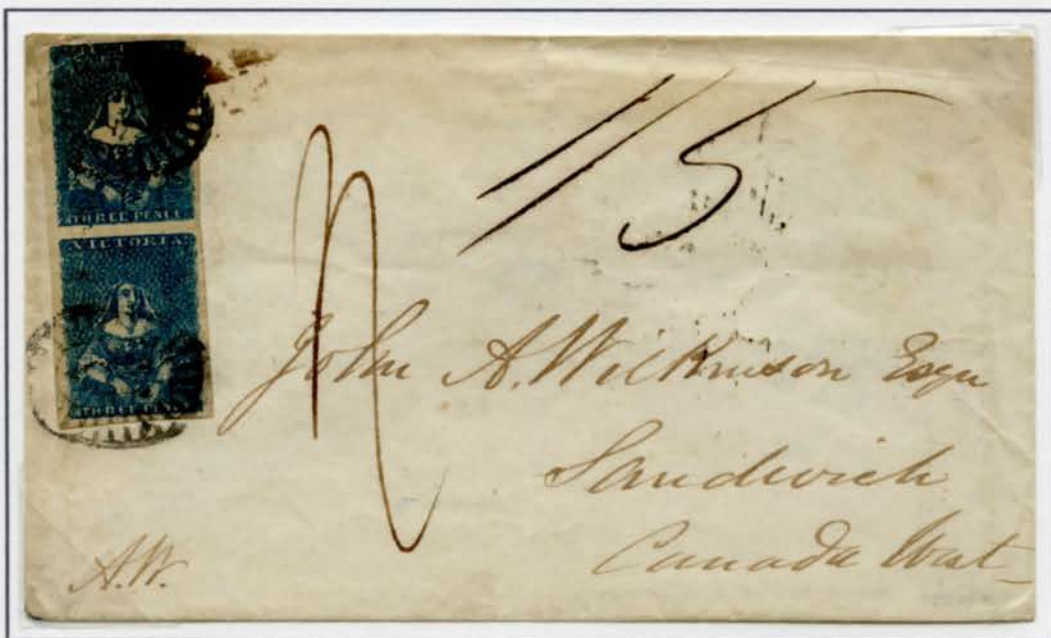 THREE PENCE
VICTORIA
THREE PENCE
1/5
John A. Wilkinson Esqr
Sandwich
Canada West
A.W.